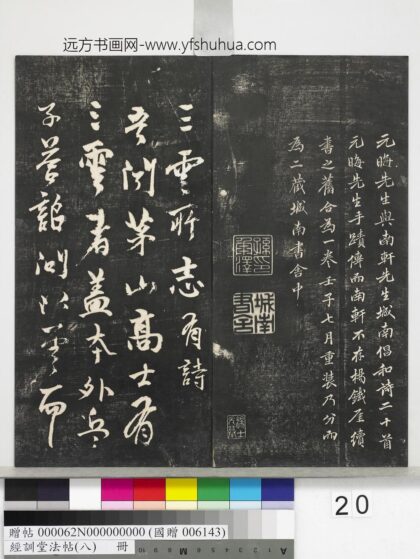 远方书画网-www.yfshuhua.com
元晦先生與南軒先生城南倡和詩二十首
元晦先生手蹟傳而南軒不存楊鐵厓續
書之舊合為一卷壬子七月重裝乃分而
為二藏城南書舍中
三雲所志有詩
吾聞茅山高士有
三雲者蓋本外兵
子答詔問以而
20
贈帖 000062N000000000 (國贈 006143)
經訓堂法帖(八) 冊